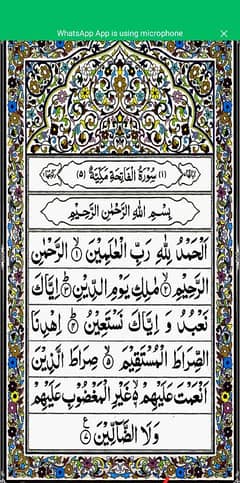 WhatsApp App is using microphone
(١) سُوْرَةُ الْفَاتِحَةِ مَكِّيَّةٌ (٥)
بِسْمِ اللّٰهِ الرَّحْمٰنِ الرَّحِيْمِ
اَلْحَمْدُ لِلّٰهِ رَبِّ الْعٰلَمِيْنَ ۙ۱ الرَّحْمٰنِ
الرَّحِيْمِ ۙ۲ مٰلِكِ يَوْمِ الدِّيْنِ ؕ۳ اِيَّاكَ
نَعْبُدُ وَ اِيَّاكَ نَسْتَعِيْنُ ؕ۴ اِهْدِنَا
الصِّرَاطَ الْمُسْتَقِيْمَ ۙ۵ صِرَاطَ الَّذِيْنَ
اَنْعَمْتَ عَلَيْهِمْ ۙ۶ غَيْرِ الْمَغْضُوْبِ عَلَيْهِمْ
وَلَا الضَّآلِّيْنَ ۷